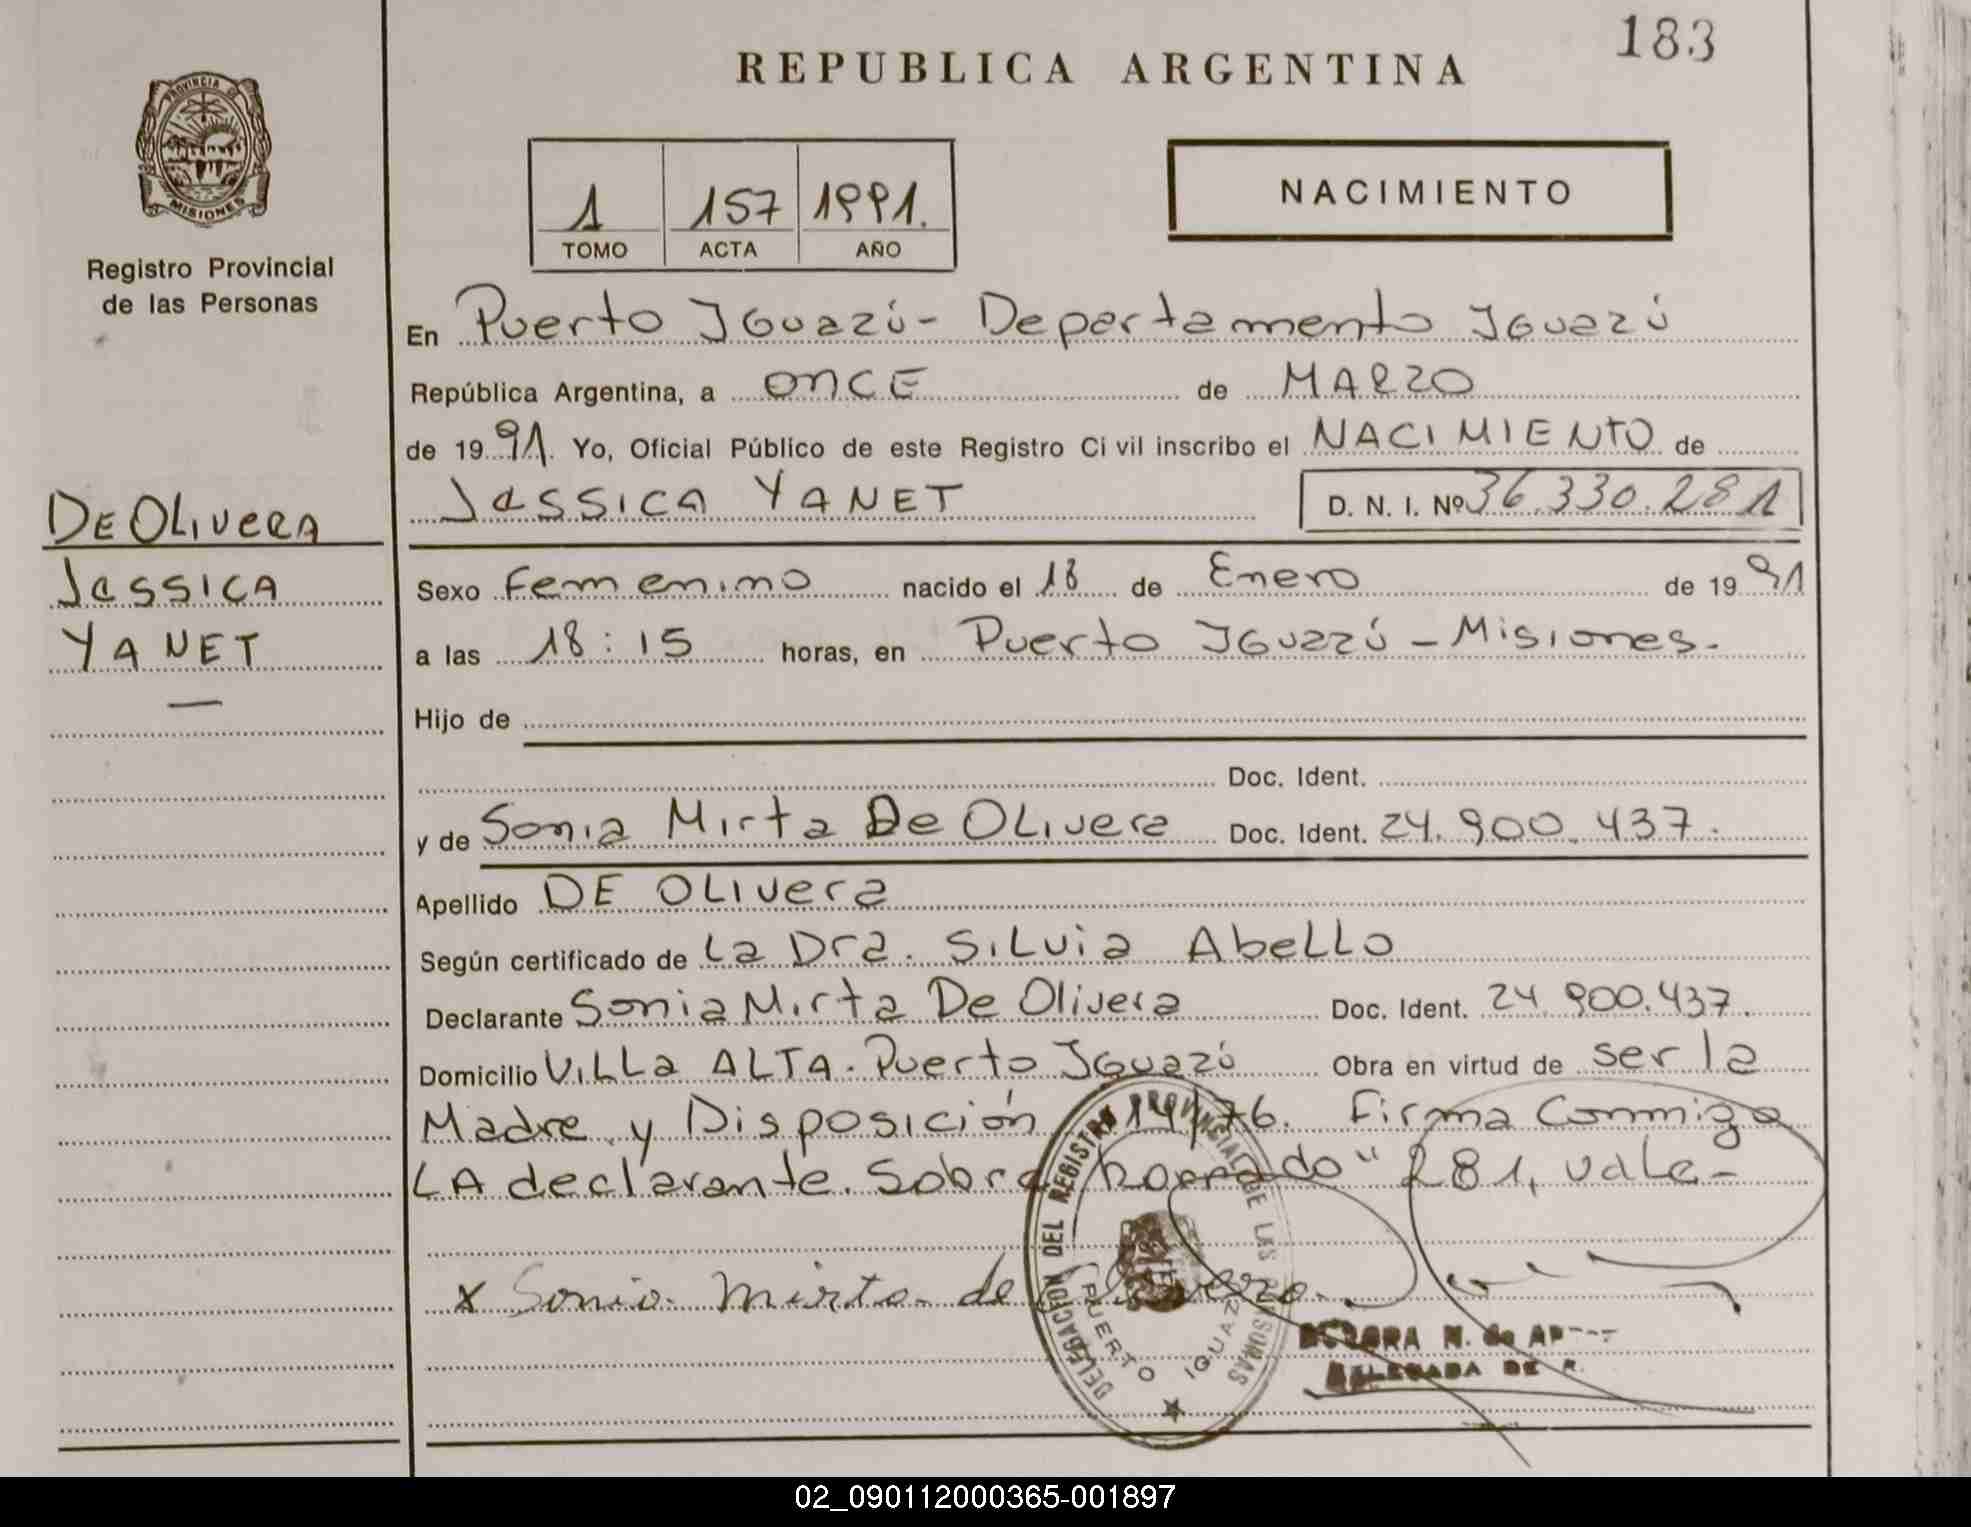 183
REPUBLICA ARGENTINA
PROVINCIA DE
MISIONES
Registro Provincial
de las Personas
1 157 1991.
TOMO ACTA AÑO
NACIMIENTO
En Puerto Iguazú - Departamento Iguazú
República Argentina, a ONCE de MARZO
de 1991. Yo, Oficial Público de este Registro Civil inscribo el NACIMIENTO de
JESSICA YANET D. N. I. Nº 36.330.281
DE OLIVERA
JESSICA
YANET
—
Sexo Femenino nacido el 18 de Enero de 1991
a las 18:15 horas, en Puerto Iguazú - Misiones.
Hijo de
Doc. Ident.
y de Sonia Mirta De Olivera Doc. Ident. 24.900.437.
Apellido DE OLivera
Según certificado de La Dra. Silvia Abello
Declarante Sonia Mirta De Olivera Doc. Ident. 24.900.437.
Domicilio Villa ALTA. Puerto Iguazú Obra en virtud de ser la
Madre y Disposición 14/76. Firma Conmigo
LA declarante. Sobre borrado "281, vale-
x Sonia Mirta de Olivera.
DELEGACION DEL REGISTRO PROVINCIAL DE LAS PERSONAS
PUERTO IGUAZU
N. de
DELEGADA DE R.
02_090112000365-001897